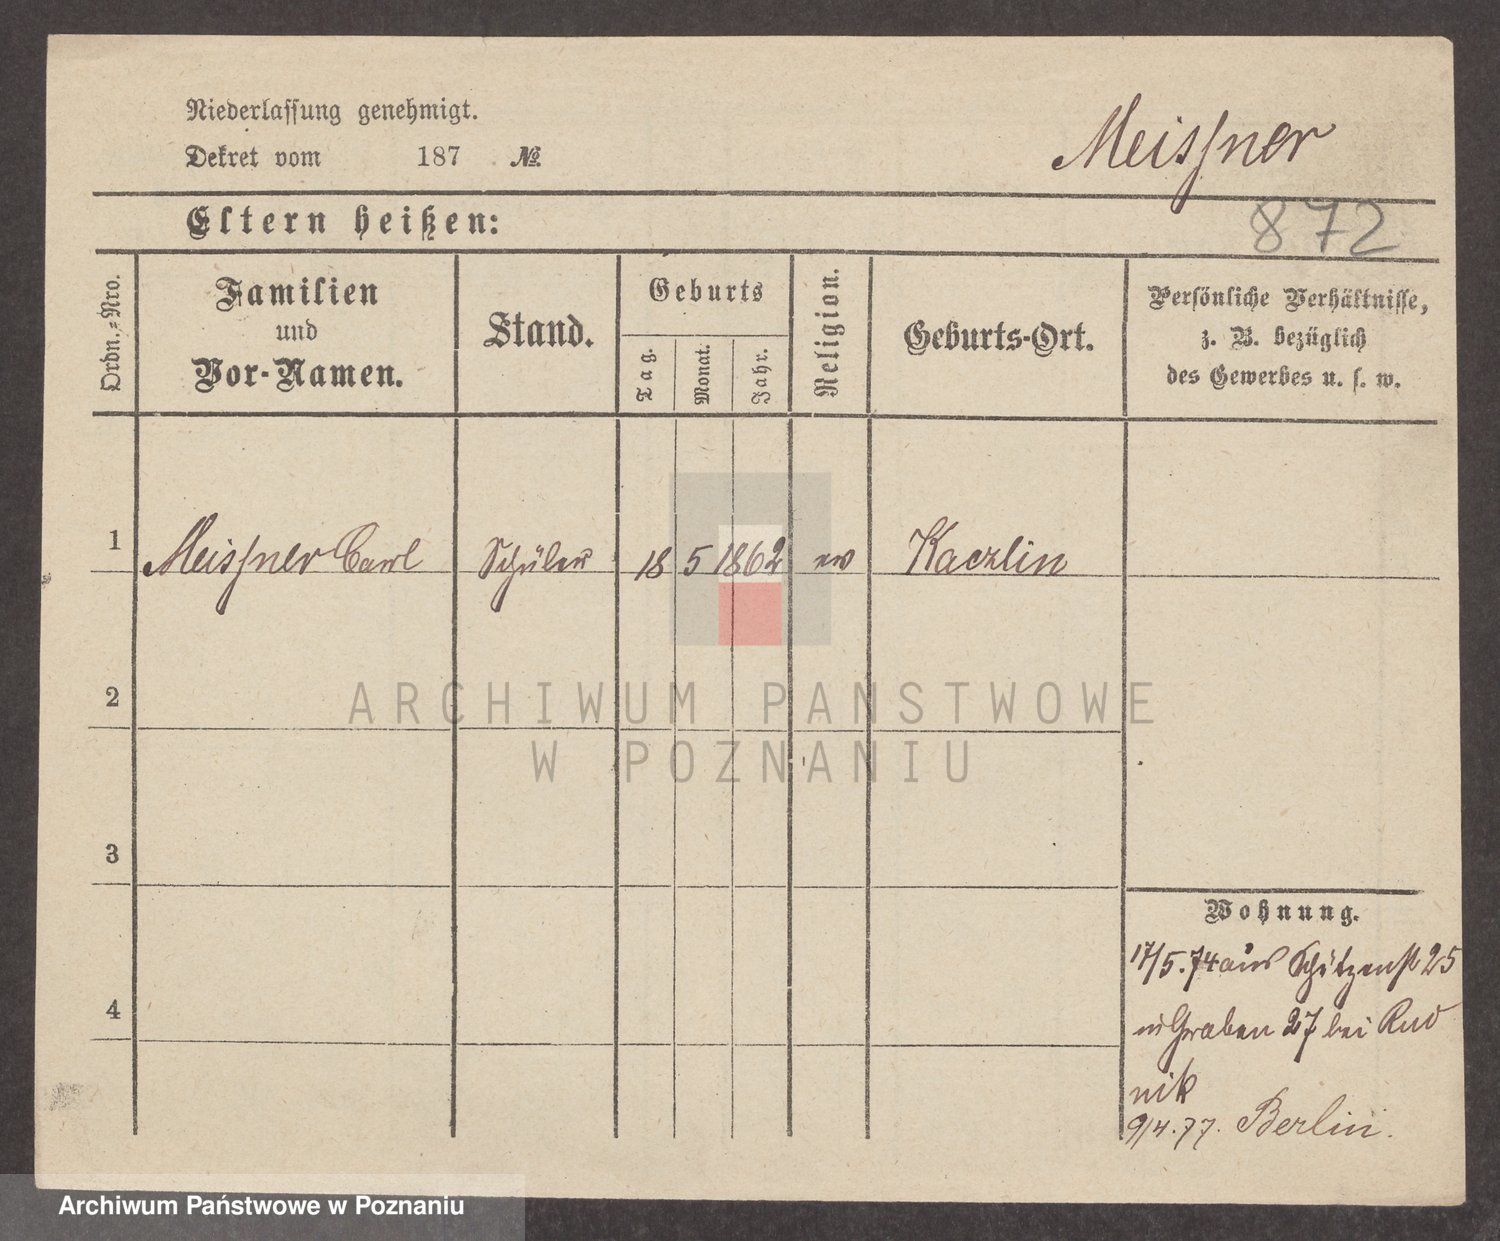 Niederlassung genehmigt.
Dekret vom 187 №
Meissner
872
Eltern heißen:
Ordn.=Nro.
Familien
und
Vor-Namen.
Stand.
Geburts
Tag.
Monat.
Jahr.
Religion.
Geburts-Ort.
Persönliche Verhältnisse,
z. B. bezüglich
des Gewerbes u. s. w.
1 Meissner Carl Schüler 18 5 1862 ev Kaczlin
2
3
4
Wohnung.
17/5.74 aus Schützenst 25
in Graben 27 bei Rud
nik
9/4.77. Berlin.
ARCHIWUM PAŃSTWOWE
W POZNANIU
Archiwum Państwowe w Poznaniu